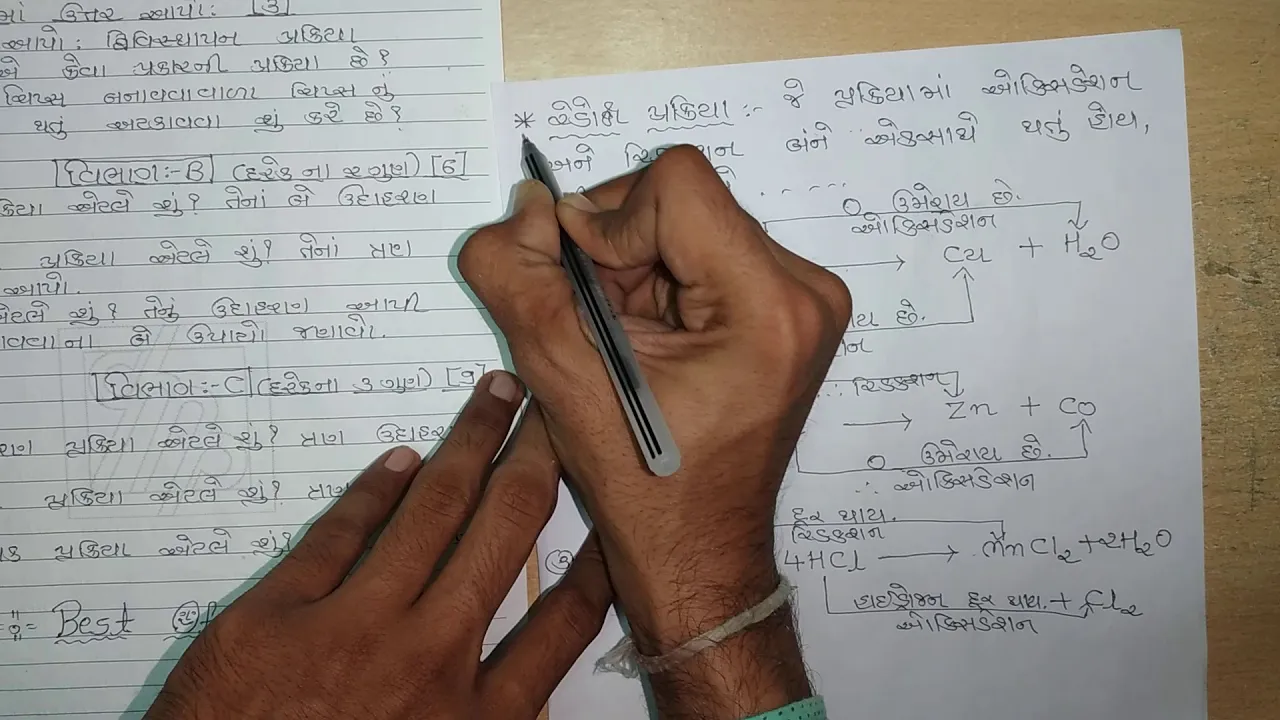 માં ઉત્તર આપો: [3]
આપો: દ્વિવિસ્થાપન પ્રક્રિયા
એ કેવા પ્રકારની પ્રક્રિયા છે?
ચિપ્સ બનાવવાવાળા ચિપ્સ નું
થતું અટકાવવા શું કરે છે?
વિભાગ:-B (દરેક ના ૨ ગુણ) [6]
એટલે શું? તેનાં બે ઉદાહરણ
પ્રક્રિયા એટલે શું? તેનાં ત્રણ
આપો.
એટલે શું? તેનું ઉદાહરણ આપી
ના બે ઉપાયો જણાવો.
વિભાગ:-C (દરેકના ૩ ગુણ) [9]
પ્રક્રિયા એટલે શું? ત્રણ
પ્રક્રિયા એટલે શું? ત્રણ
પ્રક્રિયા એટલે શું?
Best
* રેડોક્ષ પ્રક્રિયા :- જે પ્રક્રિયામાં ઓક્સિડેશન
અને બંને એકસાથે થતું હોય,
O ઉમેરાય છે.
ઓક્સિડેશન
→ Cu + H₂O
છે.
∴ રિડક્શન
→ Zn + CO
O ઉમેરાય છે.
∴ ઓક્સિડેશન
દૂર થાય.
રિડક્શન
4HCl → MnCl₂ + 2H₂O
હાઈડ્રોજન દૂર થાય. + Cl₂
ઓક્સિડેશન